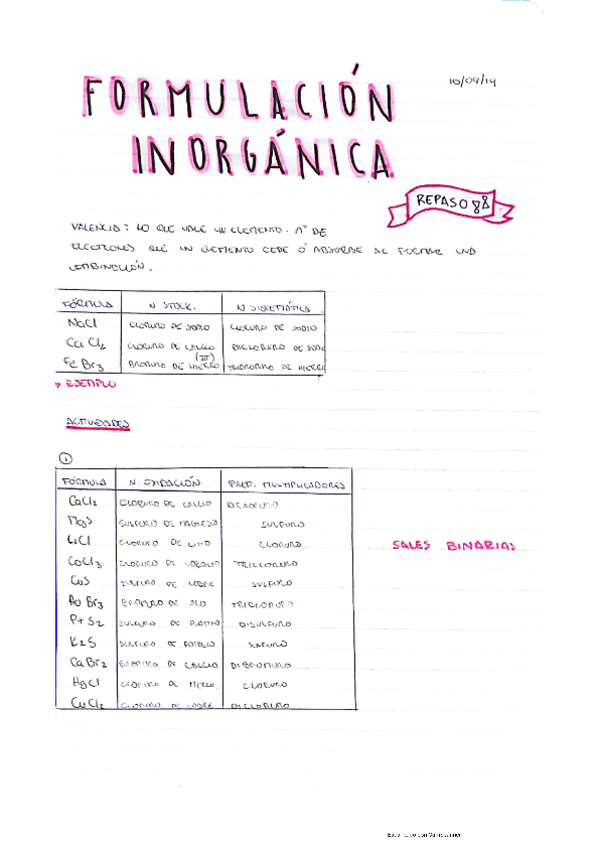 10/09/14
FORMULACIÓN
INORGÁNICA
REPASO
VALENCIA: LO QUE VALE UN ELEMENTO. nº DE
ELECTRONES QUE UN ELEMENTO CEDE Ó ABSORBE AL FORMAR UNA
COMBINACIÓN.
FÓRMULA N STOCK. N SISTEMÁTICA
NaCl CLORURO DE SODIO CLORURO DE SODIO
CaCl2 CLORURO DE CALCIO DICLORURO DE
FeBr3 BROMURO DE HIERRO (III) DE HIERRO
EJEMPLO
ACTIVIDADES
1
FÓRMULA N. OXIDACIÓN PREF. MULTIPLICADORES
CaCl2 CLORURO DE CALCIO DICLORURO
MgS SULFURO DE MAGNESIO SULFURO
LiCl CLORURO DE LITIO CLORURO
CoCl3 CLORURO DE COBALTO TRICLORURO
CuS SULFURO DE COBRE SULFURO
AuBr3 BROMURO DE
PtS2 SULFURO DE PLATINO DISULFURO
K2S SULFURO DE POTASIO SULFURO
CaBr2 BROMURO DE CALCIO DIBROMURO
HgCl CLORURO DE CLORURO
CuCl2 CLORURO DE COBRE DICLORURO
SALES BINARIAS